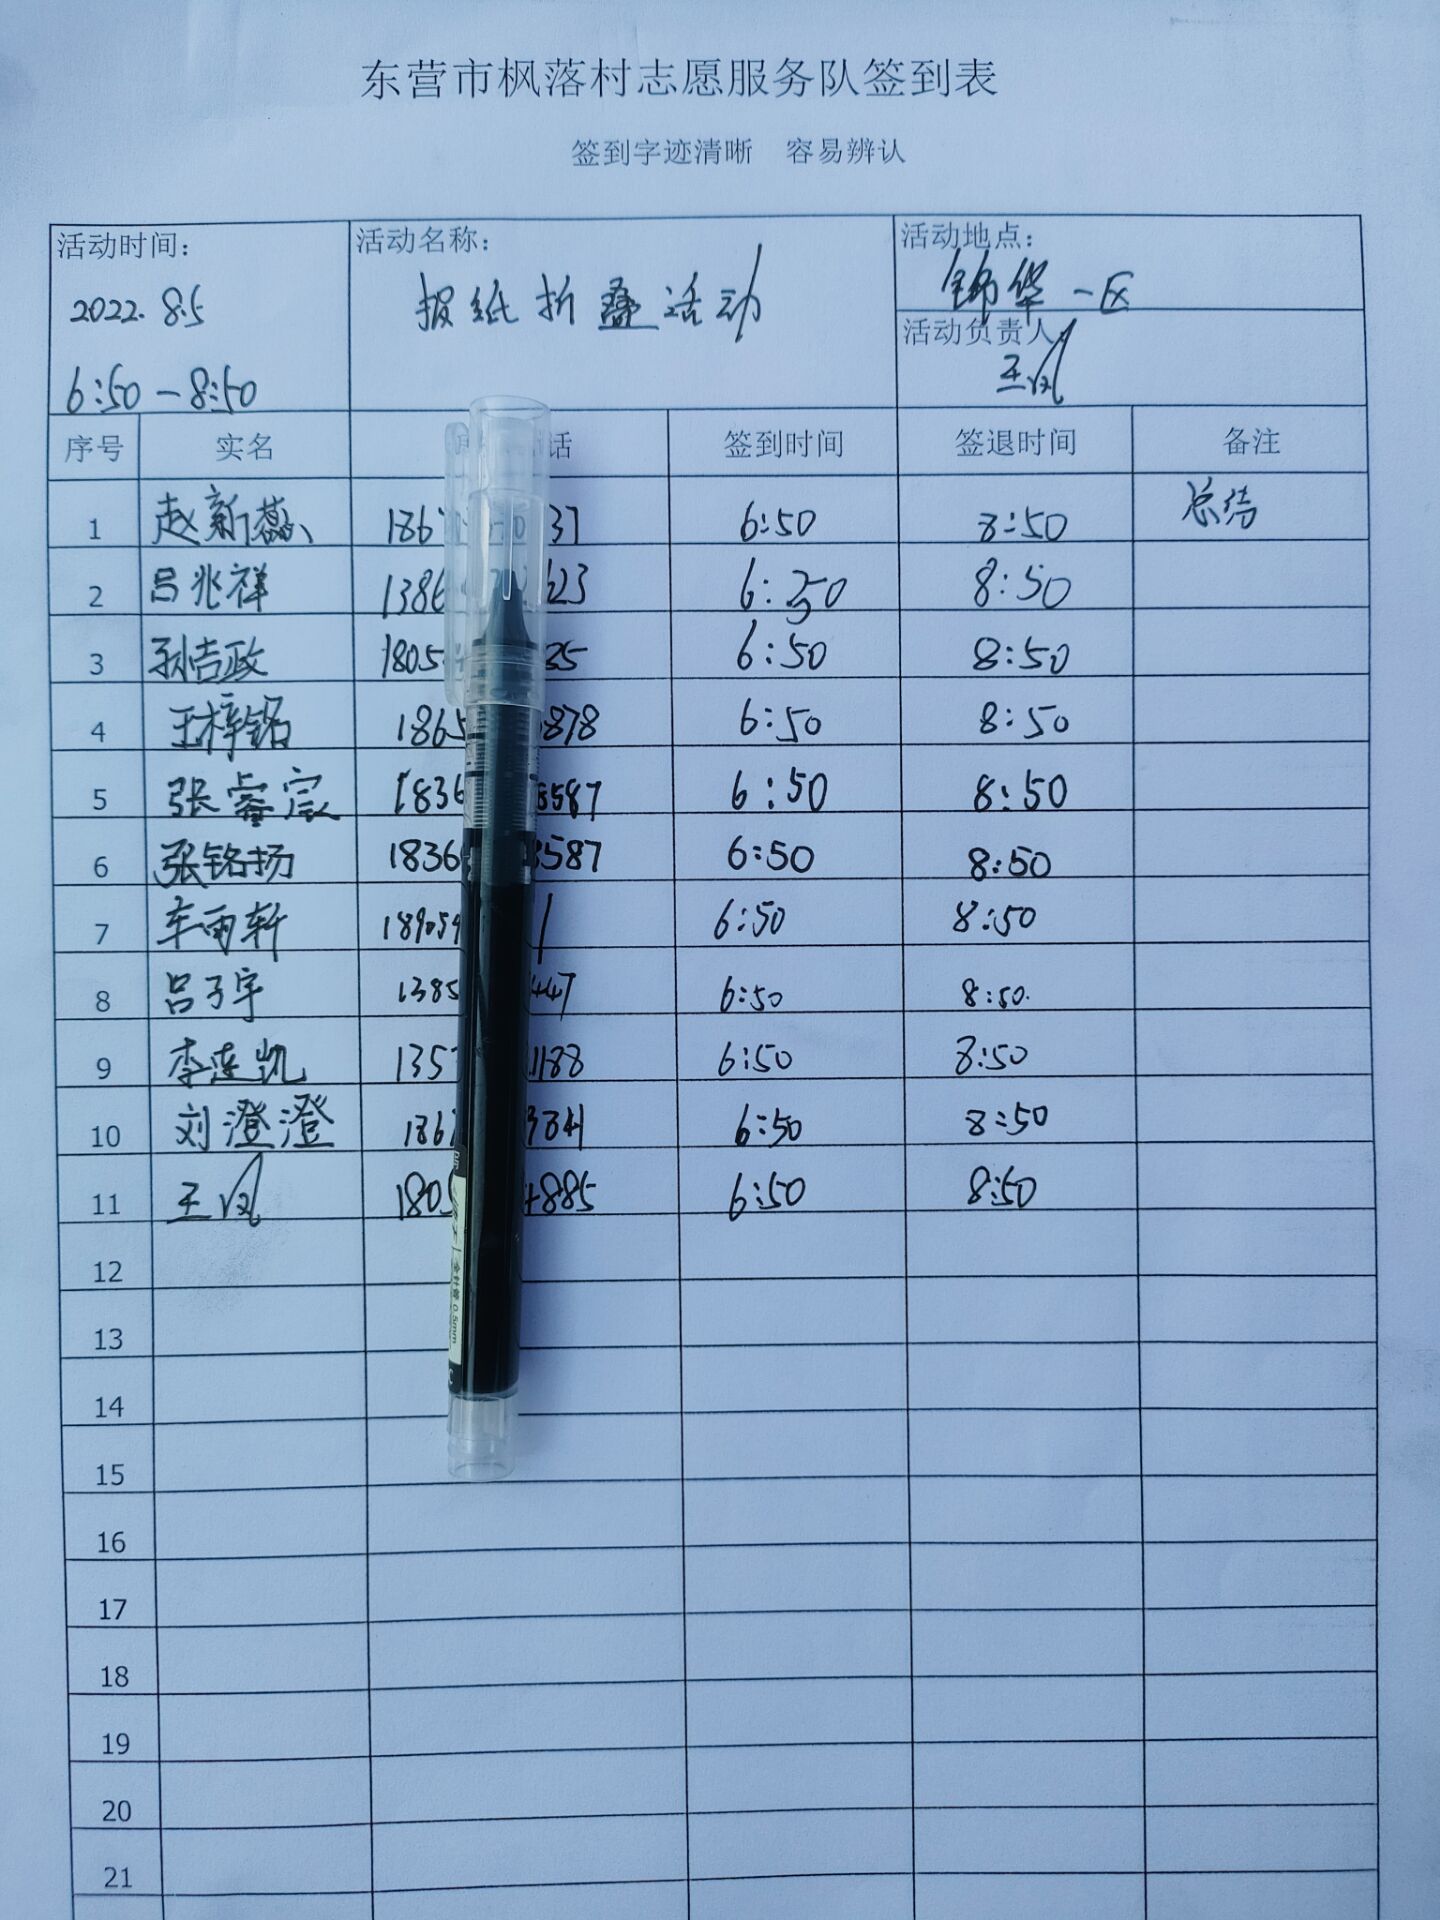 东营市枫落村志愿服务队签到表
签到字迹清晰 容易辨认
活动时间: 活动名称: 活动地点:
2022.8.5 报纸折叠活动 锦华一区
活动负责人:
6:50-8:50 王凤
序号 实名 话 签到时间 签退时间 备注
1 赵新蕊 37 6:50 8:50 总结
2 吕兆祥 1386 623 6:50 8:50
3 孙吉政 1805 35 6:50 8:50
4 王梓铭 1865 878 6:50 8:50
5 张睿宸 1836 8587 6:50 8:50
6 张铭扬 1836 8587 6:50 8:50
7 车雨轩 189054 1 6:50 8:50
8 吕子宇 1385 447 6:50 8:50
9 李连凯 135 1188 6:50 8:50
10 刘澄澄 186 6:50 8:50
11 王凤 1805 4885 6:50 8:50
全针管0.5mm
12
13
14
15
16
17
18
19
20
21